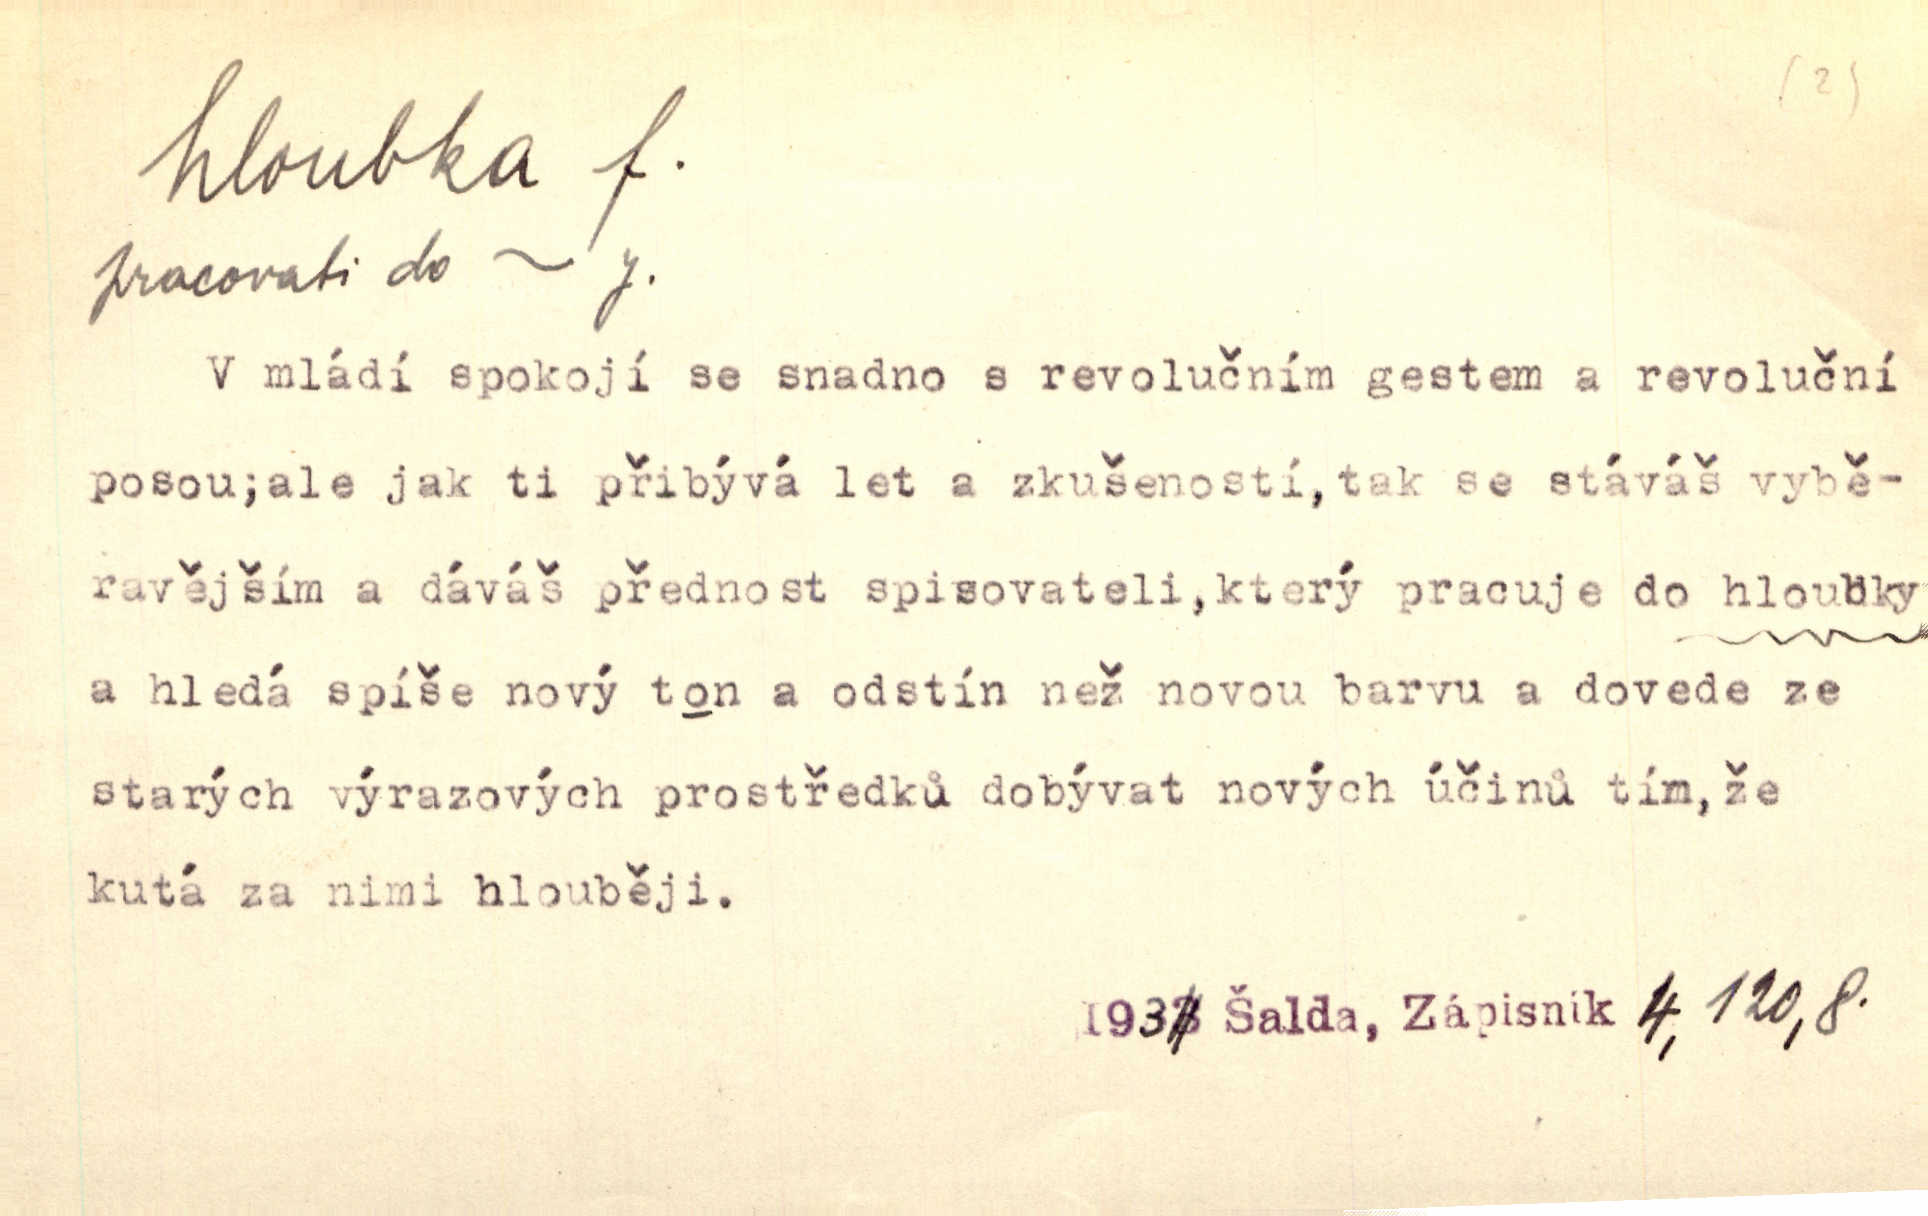 (2)
hloubka f.
pracovati do ~ y.
V mládí spokojí se snadno s revolučním gestem a revoluční
posou;ale jak ti přibývá let a zkušeností,tak se stáváš vybě-
ravějším a dáváš přednost spisovateli,který pracuje do hloubky
a hledá spíše nový ton a odstín než novou barvu a dovede ze
starých výrazových prostředků dobývat nových účinů tím,že
kutá za nimi hlouběji.
193 Šalda, Zápisník 4, 120, 8.